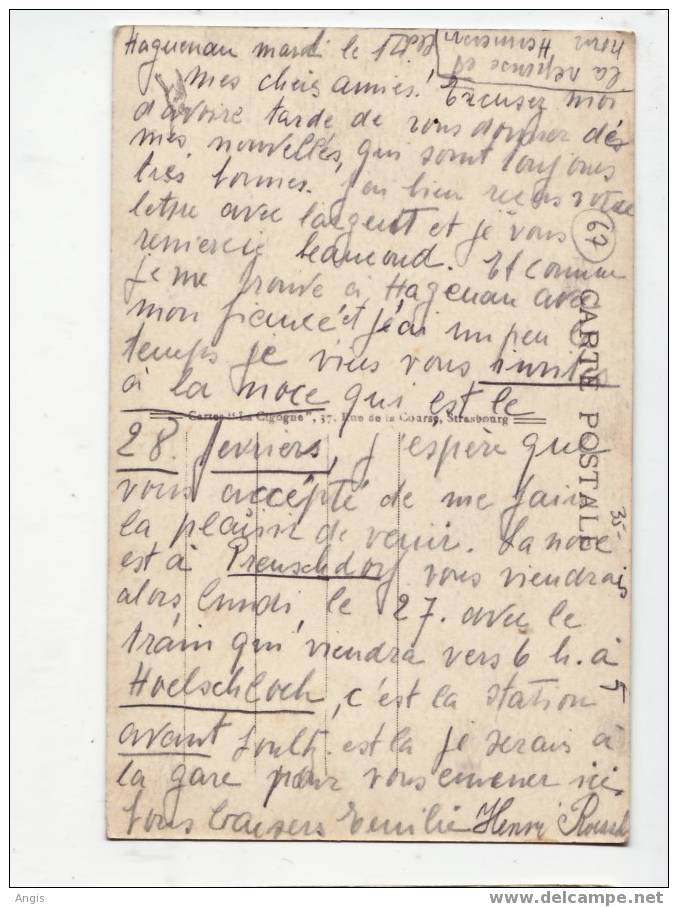 Haguenau mardi le
la reponse et
Mes cheis amies! Excusez moi
d'avoire tarde de vous donner dés
mes nouvellés, qui sont toujours
trés bonnes. J'ai bien reçus votre
lettre avec l'argent et je vous
remercie beaucoud. Et comme
je me trouve à Hagenau avec
mon fiancé et j'ai un peu
temps je viens vous invités
à la noce qui est le
Cartes "La Cigogne", 37, Rue de la Course, Strasbourg
28. fevriers, j'espère que
vous accépté de me fair
la plaisir de venir. La noce
est à Preuschdorf vous viendrais
alors lundi, le 27. avec le
train qui viendra vers 6 h. à
5
Hoelschloch, c'est la station
avant Soultz. est la je serais à
la gare pour vous emener ici.
Bons baisers Emilie Henri
67
CARTE POSTALE
35-
Angis
www.delcampe.net